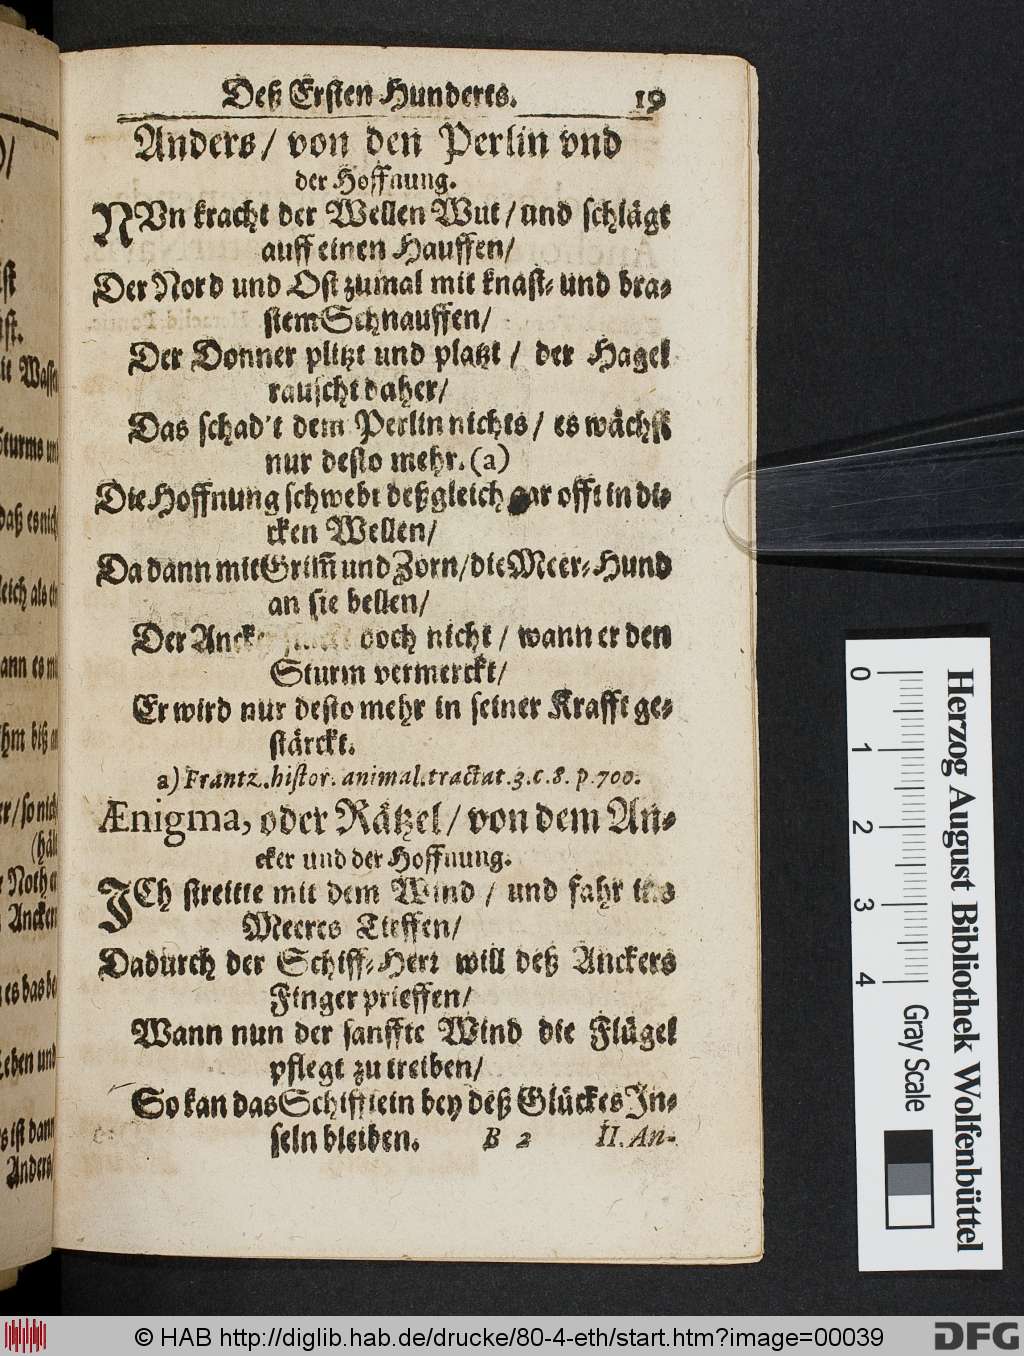 Deß Ersten Hunderts. 19
Anders/ von den Perlin vnd
der Hoffnung.
NVn kracht der Wellen Wut/ und schlägt
auff einen Hauffen/
Der Nord und Ost zumal mit knast- und bra-
stem Schnauffen/
Der Donner plitzt und platzt / der Hagel
rauscht daher/
Das schad't dem Perlin nichts / es wächst
nur desto mehr. (a)
Die Hoffnung schwebt deßgleich gar offt in di-
cken Wellen/
Da dann mit Grim̃ und Zorn/ die Meer-Hund
an sie bellen/
Der Ancker doch nicht / wann er den
Sturm vermerckt/
Er wird nur desto mehr in seiner Krafft ge-
stärckt.
a) Frantz. histor. animal. tractat. 3. c. 8. p. 700.
Ænigma, oder Rätzel / von dem An-
cker und der Hoffnung.
ICh streitte mit dem Wind / und fahr ins
Meeres Tieffen/
Dadurch der Schiff-Herr will deß Anckers
Finger prieffen/
Wann nun der sanffte Wind die Flügel
pflegt zu treiben/
So kan das Schifflein bey deß Glückes In-
seln bleiben. B 2 II. An-
ist
Wassers
Sturms und
daß es nicht
gleich als ein
wann es mit
ihm biß an
er/ so nicht
(hält
Noth er
Ancken
es das be
Leben und
s ist dann
Anders/
0 1 2 3 4
Herzog August Bibliothek Wolfenbüttel
Gray Scale
© HAB http://diglib.hab.de/drucke/80-4-eth/start.htm?image=00039
DFG